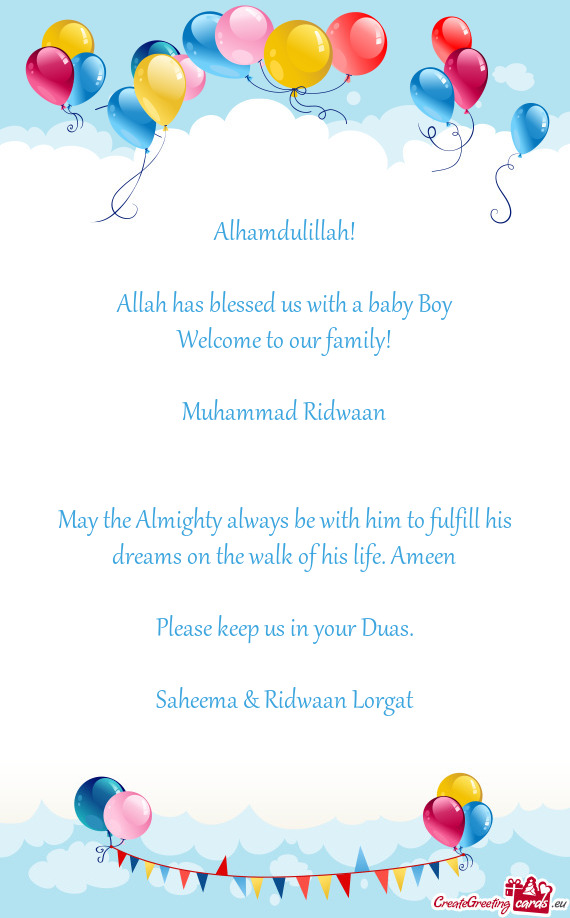 Alhamdulillah!
Allah has blessed us with a baby Boy
Welcome to our family!
Muhammad Ridwaan
May the Almighty always be with him to fulfill his
dreams on the walk of his life. Ameen
Please keep us in your Duas.
Saheema & Ridwaan Lorgat
CreateGreeting cards .eu